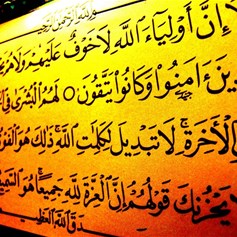 الله الرحمن الرحيم
لَا إِنَّ أَوْلِيَاءَ اللَّهِ لَا خَوْفٌ عَلَيْهِمْ وَلَا هُمْ
ينَ ءَامَنُوا وَكَانُوا يَتَّقُونَ ○ لَهُمُ الْبُشْرَى فِي
الْأَخِرَةِ لَا تَبْدِيلَ لِكَلِمَٰتِ اللَّهِ ذَٰلِكَ هُوَ الْفَوْ
لَا يَحْزُنكَ قَوْلُهُمْ إِنَّ الْعِزَّةَ لِلَّهِ جَمِيعًا هُوَ السَّمِيعُ
صدق الله العظيم